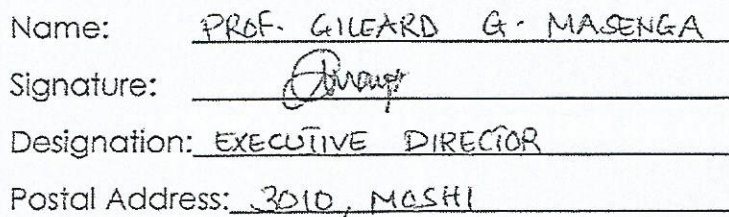 Name: PROF. GILEARD G. MASENGA
Signature:
Designation: EXECUTIVE DIRECTOR
Postal Address: 3010, MOSHI